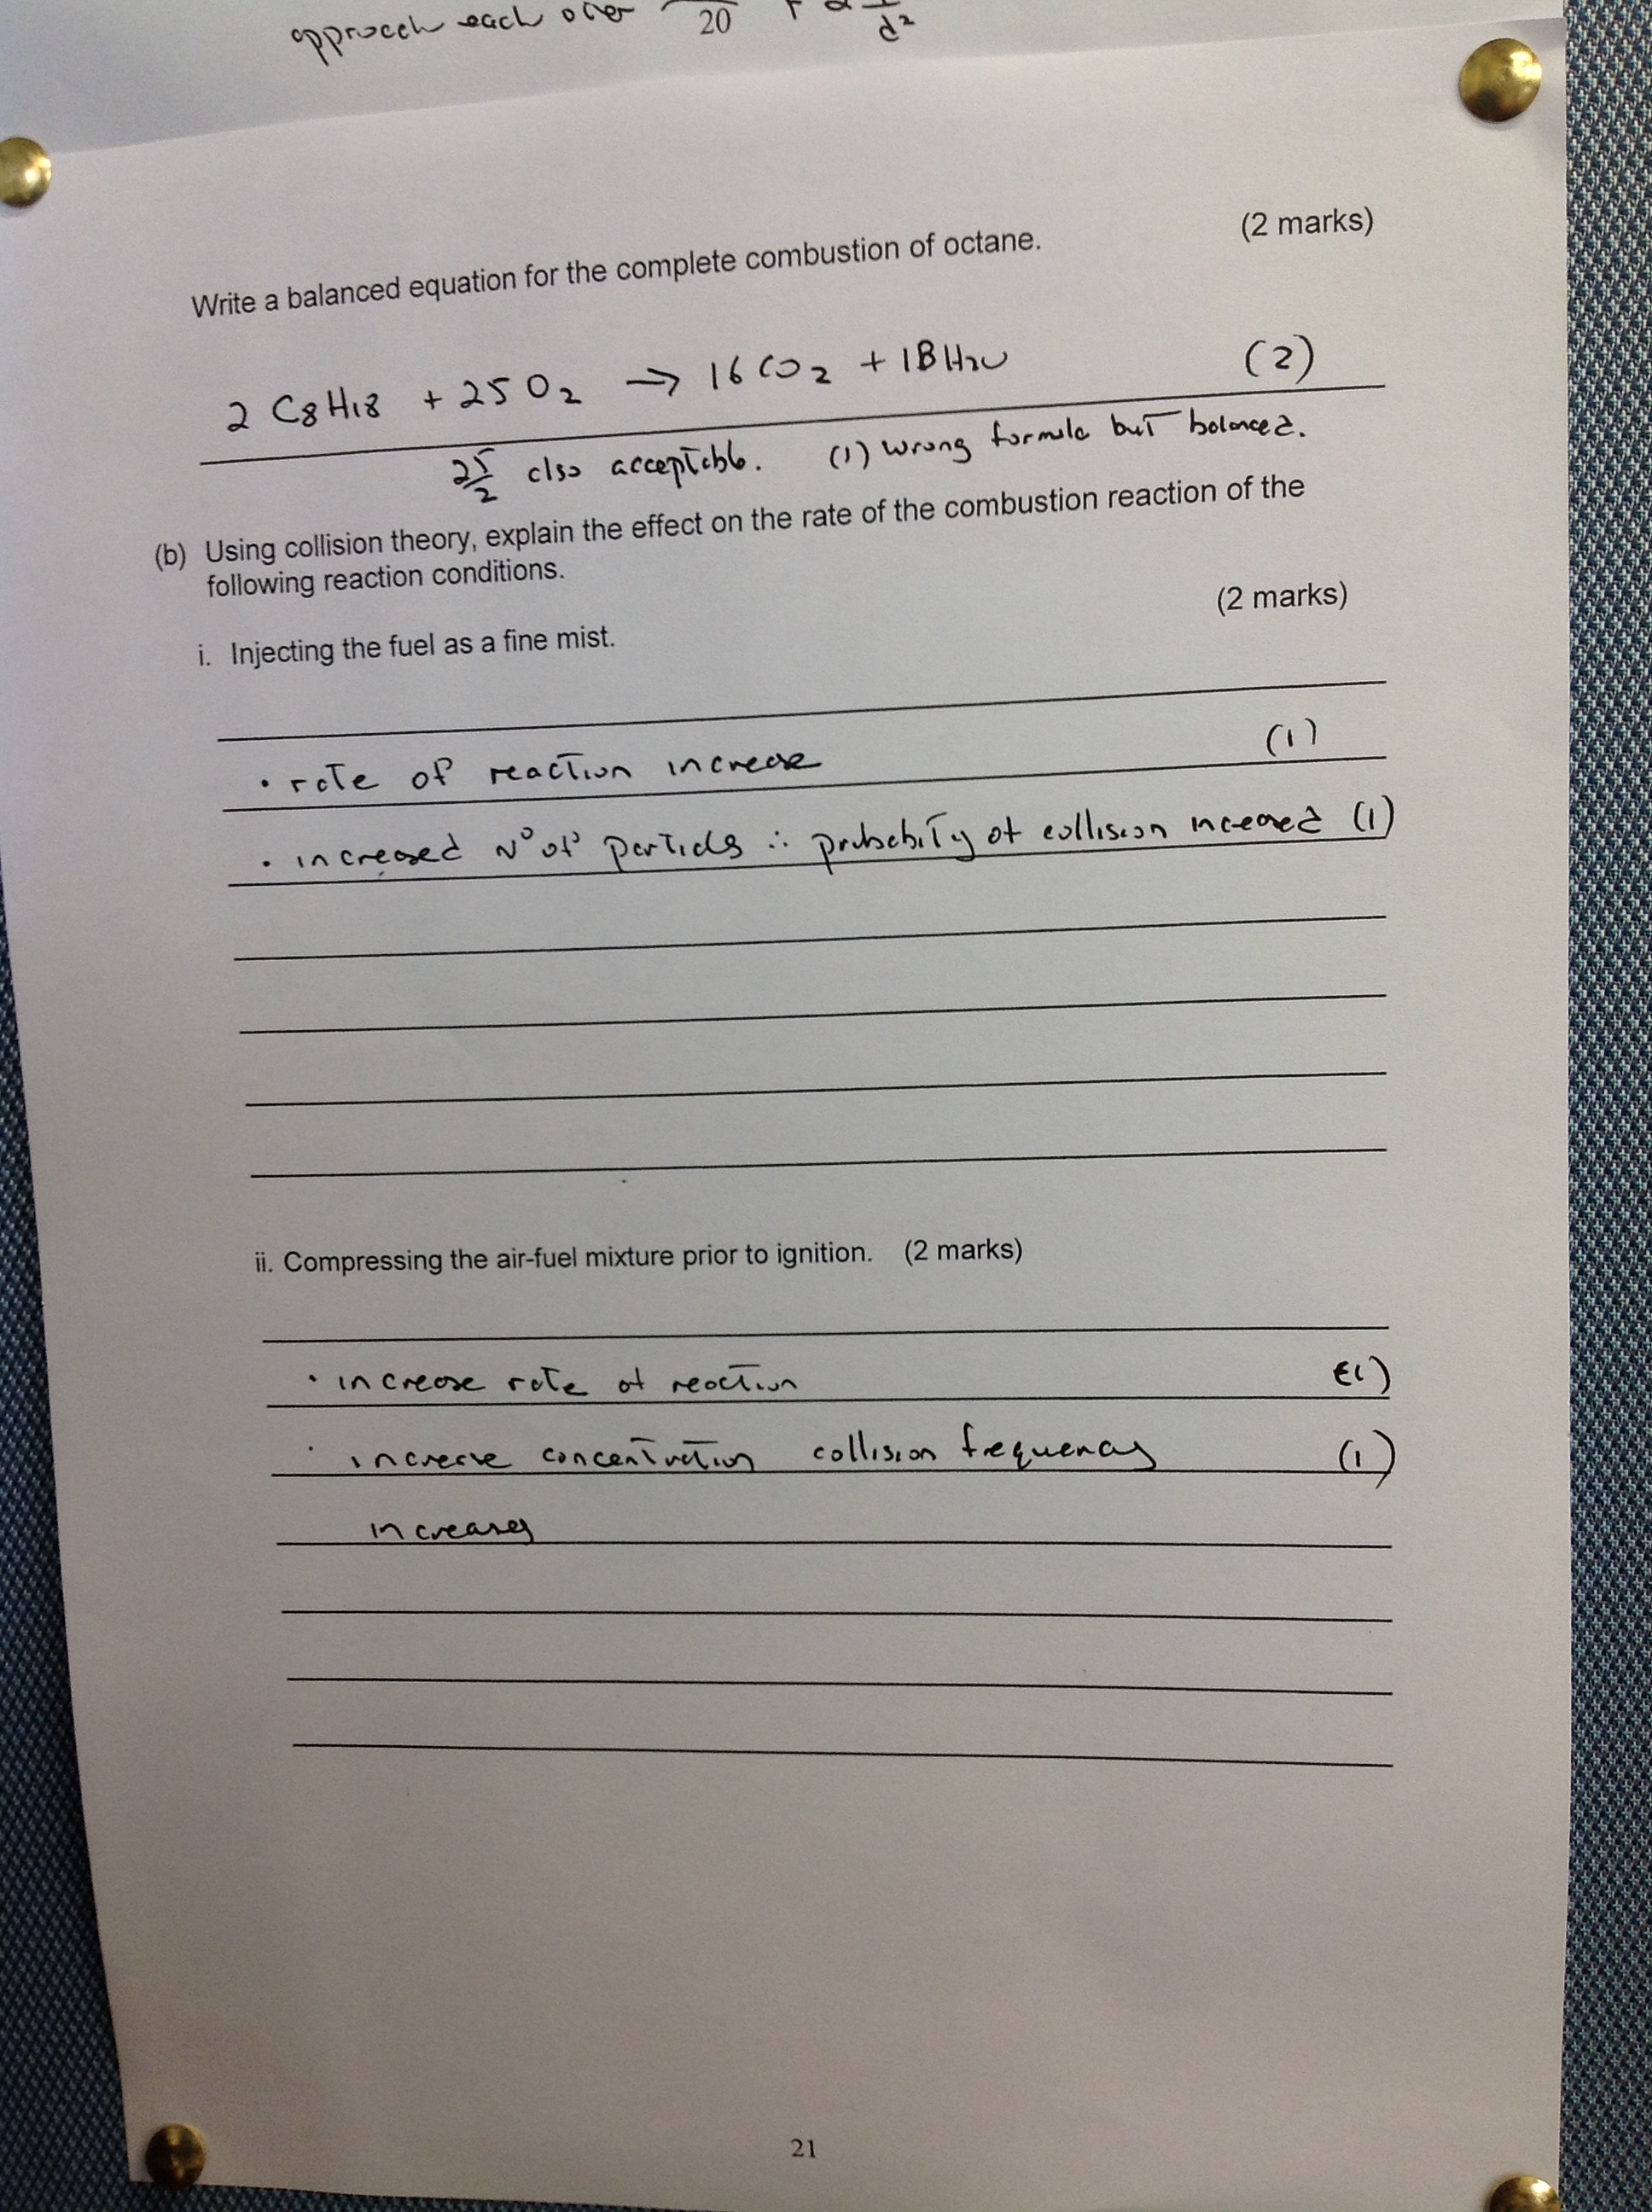 approach each other
20
d²
(2 marks)
Write a balanced equation for the complete combustion of octane.
2 C8H18 + 25 O2 → 16 CO2 + 18 H2O (2)
25/2 also acceptable. (1) wrong formula but balanced.
(b) Using collision theory, explain the effect on the rate of the combustion reaction of the
following reaction conditions.
(2 marks)
i. Injecting the fuel as a fine mist.
• rate of reaction increase (1)
• increased Nº of particles ∴ probability of collision increased (1)
ii. Compressing the air-fuel mixture prior to ignition. (2 marks)
• increase rate of reaction (1)
• increase concentration collision frequency (1)
increases
21